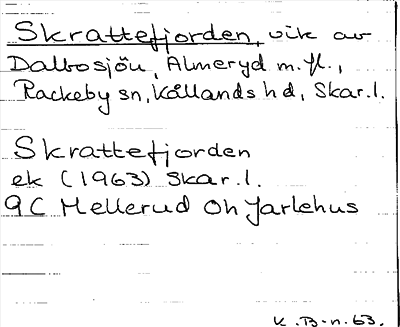 Skrattefjorden, vik av
Dalbosjön, Almeryd m.fl.,
Rackeby sn, Kållands hd, Skar.l.
Skrattefjorden
ek (1963) Skar.l.
9C Mellerud Oh Jarlehus
K.B-n.63.